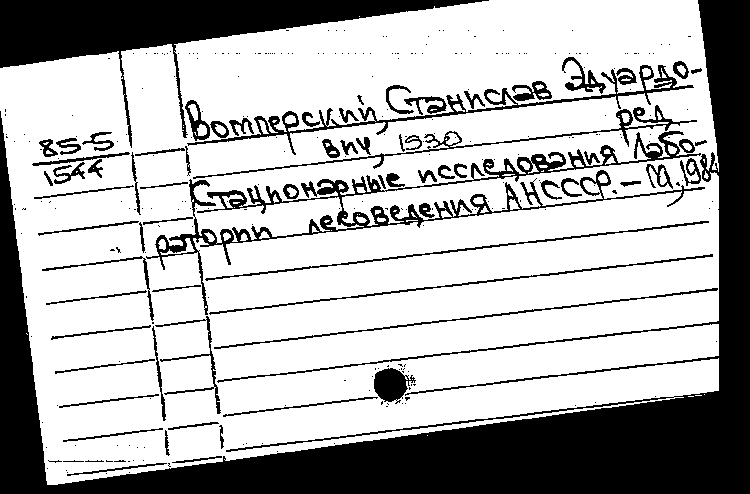 85-5
1544
Вомперский, Станислав Эдуардо-
вич, 1930 ред.
Стационарные исследования Лабо-
ратории лесоведения АНСССР. – М., 1984